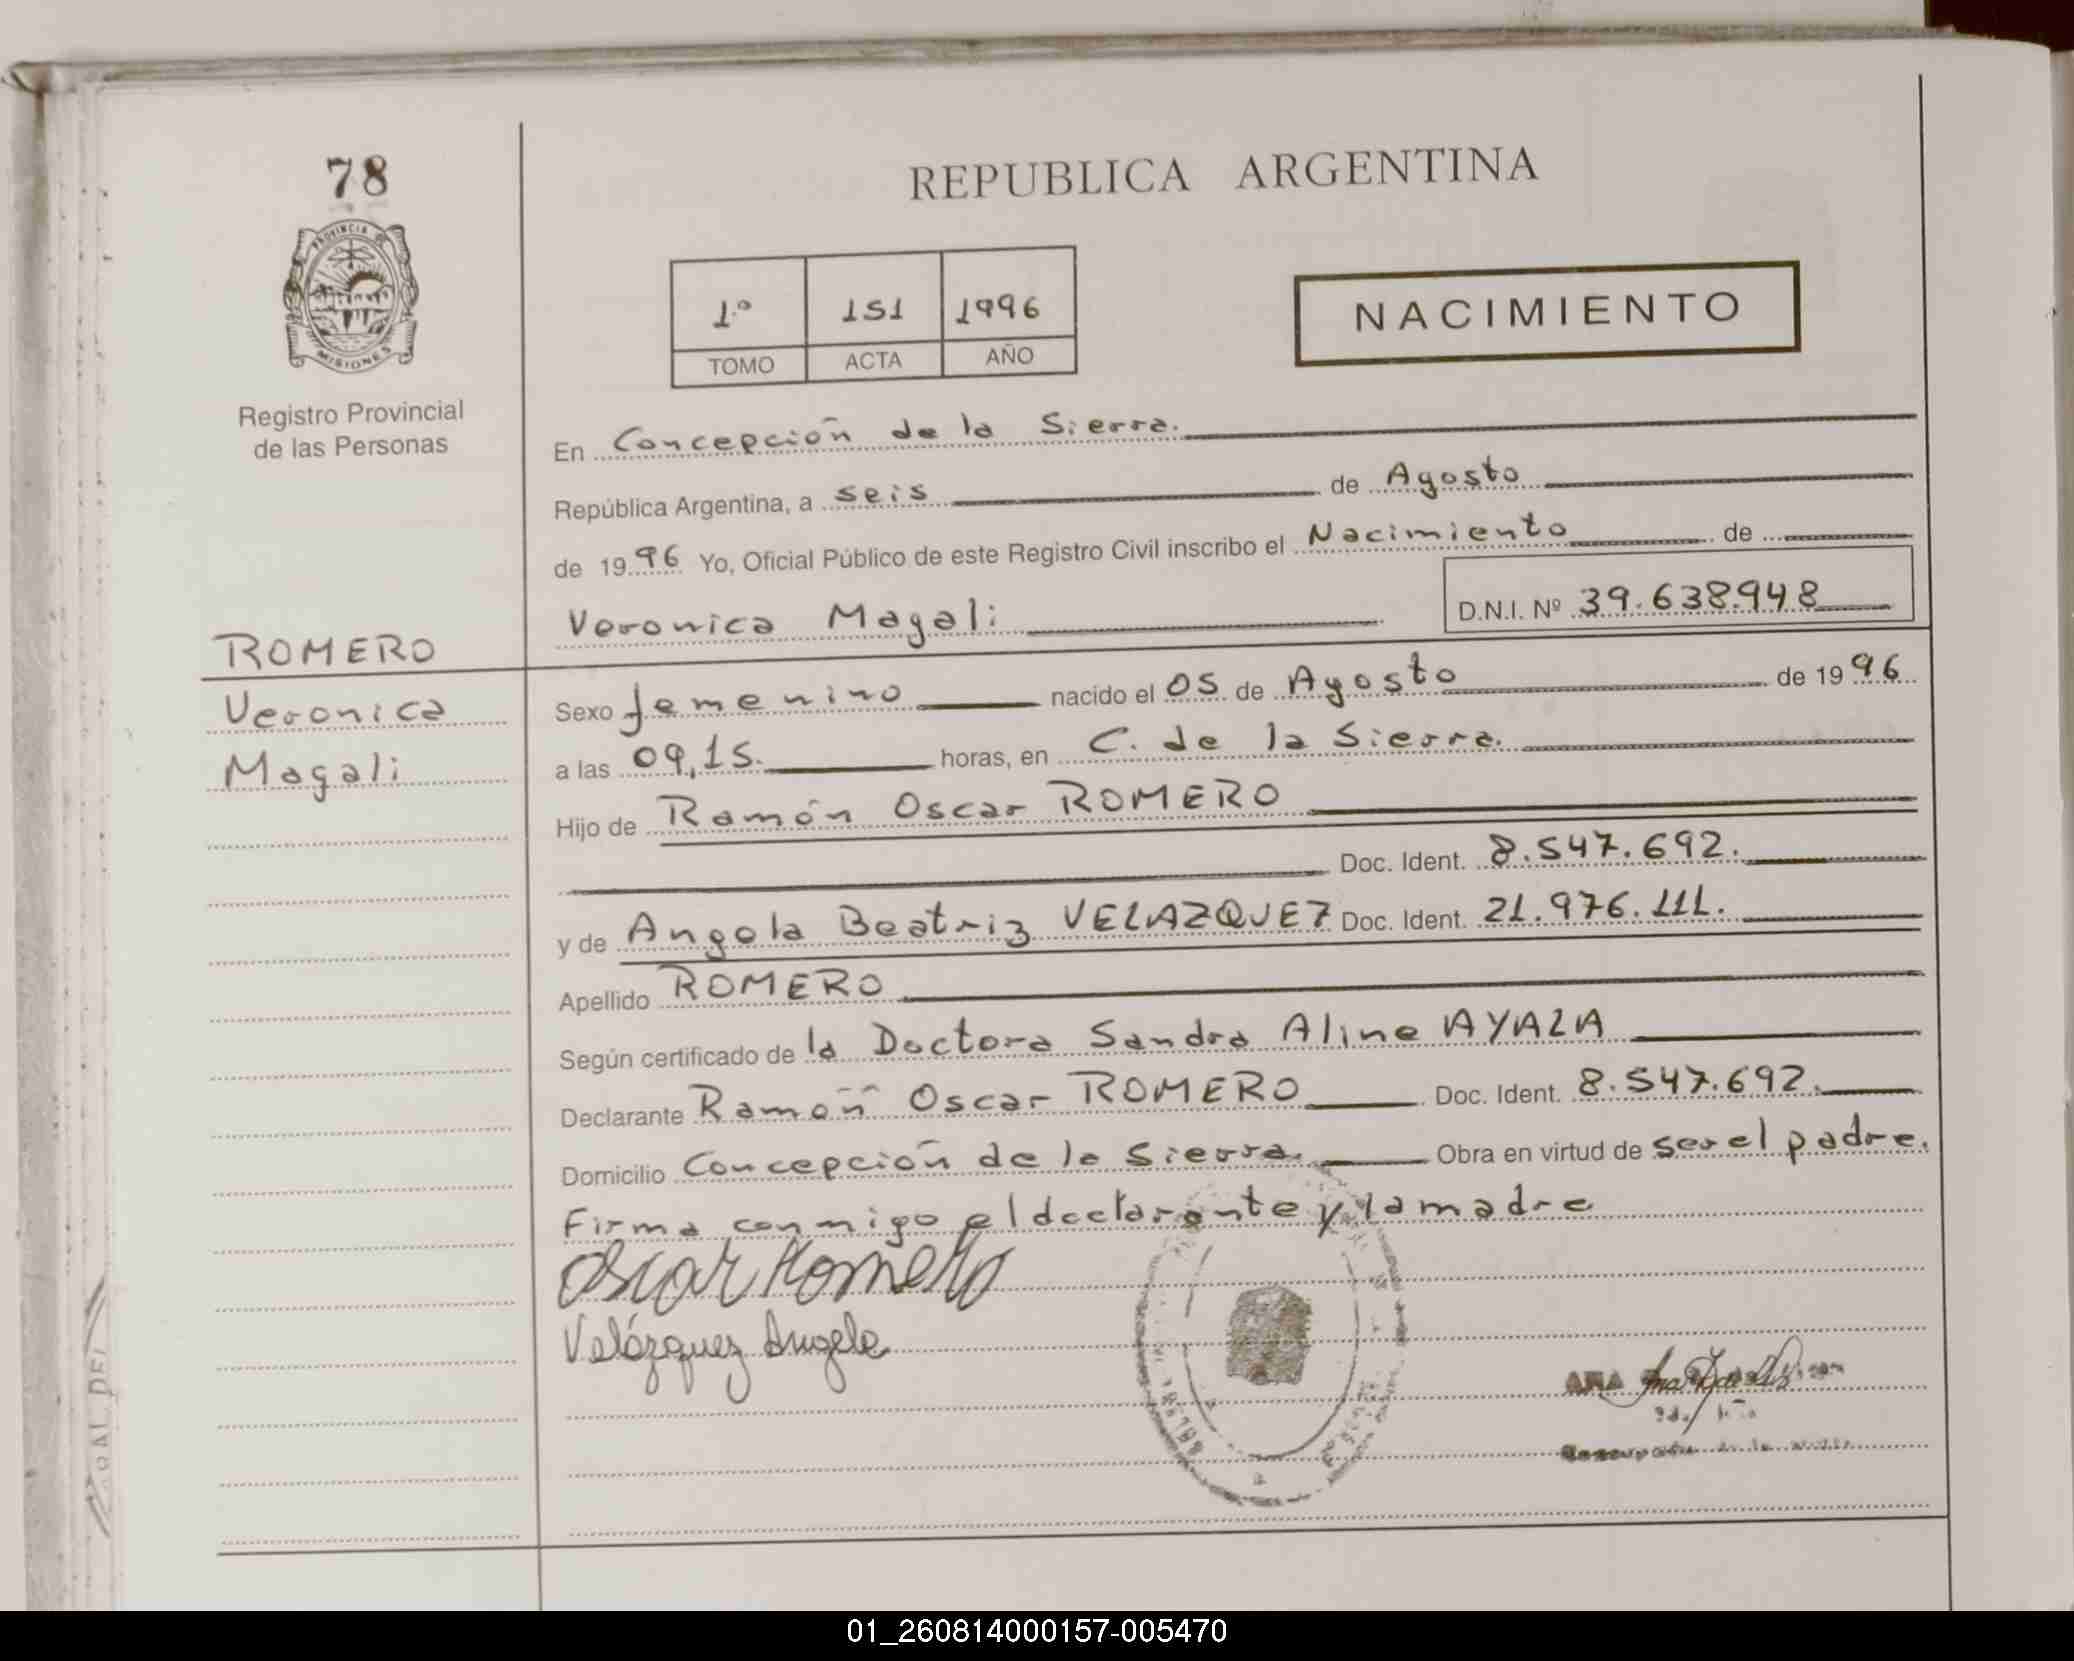 78
PROVINCIA DE
MISIONES
Registro Provincial
de las Personas
ROMERO
Veronica
Magali
REPUBLICA ARGENTINA
1º 151 1996
TOMO ACTA AÑO
NACIMIENTO
En Concepción de la Sierra.
República Argentina, a seis de Agosto
de 1996 Yo, Oficial Público de este Registro Civil inscribo el Nacimiento de
Veronica Magali D.N.I. Nº 39.638.948
Sexo femenino nacido el 05 de Agosto de 1996
a las 09,15. horas, en C. de la Sierra.
Hijo de Ramón Oscar ROMERO
Doc. Ident. 8.547.692.
y de Angela Beatriz VELAZQUEZ Doc. Ident. 21.976.111.
Apellido ROMERO
Según certificado de la Doctora Sandra Aline AYALA
Declarante Ramón Oscar ROMERO Doc. Ident. 8.547.692.
Domicilio Concepción de la Sierra. Obra en virtud de ser el padre.
Firma conmigo el declarante y la madre
Oscar Romero
Velázquez Angela
ANA
01_260814000157-005470